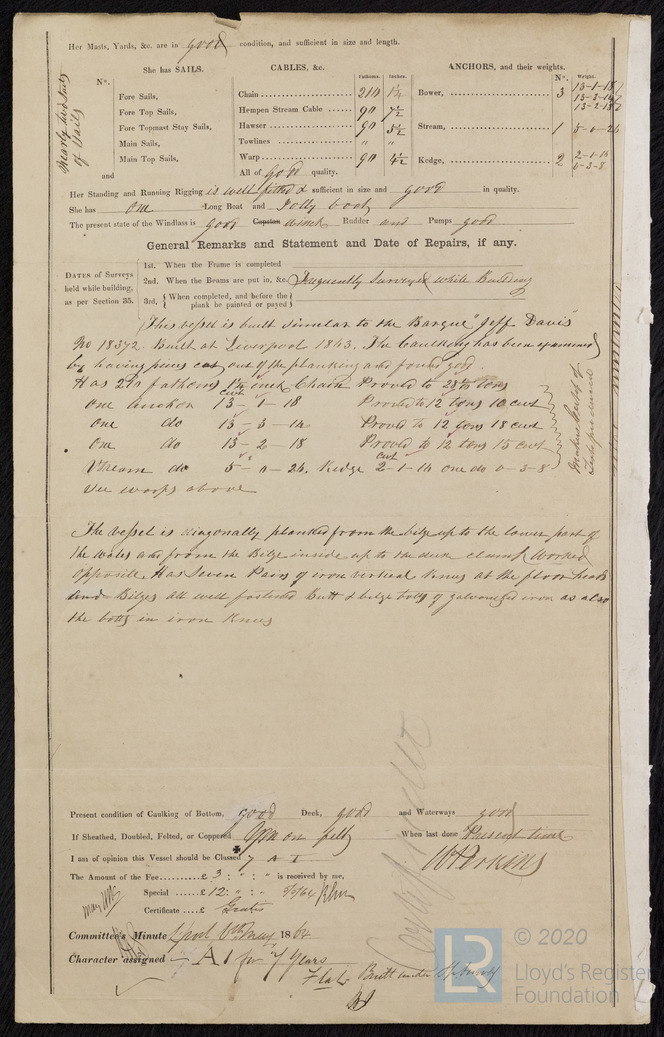 Her Masts, Yards, &c. are in good condition, and sufficient in size and length.
She has SAILS.
CABLES, &c.
ANCHORS, and their weights.
No.
Fathoms. Inches.
No. Weight.
Nearly two suits of Sails
Fore Sails,
Fore Top Sails,
Fore Topmast Stay Sails,
Main Sails,
Main Top Sails,
and
Chain 210 1¼
Hempen Stream Cable 90 7½
Hawser 90 5½
Towlines " "
Warp 90 4½
All of good quality.
Bower, 3 13-1-18
13-3-14
13-2-18
Stream, 1 5-0-26
Kedge, 2 2-1-14
0-3-8
Her Standing and Running Rigging is well fitted & sufficient in size and good in quality.
She has one Long Boat and Jolly boat
The present state of the Windlass is good Capstan winch Rudder and Pumps good
General Remarks and Statement and Date of Repairs, if any.
DATES of Surveys held while building, as per Section 35.
1st. When the Frame is completed
2nd. When the Beams are put in, &c. Frequently Surveyed while Building
3rd. { When completed, and before the plank be painted or payed }
This vessel is built similar to the Barque "Jeff Davis"
No 18372. Built at Liverpool 1863. The Caulking has been examined
by having pieces cut out of the planking and found good
Has 210 fathoms 1¼ inch Chain Proved to 28⅛ tons
one anchor 13 cwt - 1 - 18 Proved to 12 tons 10 cwt
one do 13 - 3 - 14 Proved to 12 tons 18 cwt
one do 13 - 2 - 18 Proved to 12 tons 15 cwt
Stream do 5 - 0 - 26. Kedge 2 cwt - 1 - 14 one do 0 - 3 - 8
Makers Certif of Tests produced
See warps above
The vessel is diagonally planked from the bilge up to the lower part of
the wales and from the Bilge inside up to the deck clamp worked
opposite. Has Seven Pairs of iron vertical Knees at the floor heads
and Bilges all well fastened Butt & bilge bolts of galvanized iron as also
the bolts in iron Knees
Present condition of Caulking of Bottom, good Deck, good and Waterways good
If Sheathed, Doubled, Felted, or Coppered on felt When last done Present time
I am of opinion this Vessel should be Classed 7 A 1
W Perkins
The Amount of the Fee £ 3 : " : " is received by me,
Special £ 12 : " : "
Certificate £ Gratis
Committee's Minute Lpool 6th May 1864
Character assigned A1 for 7 Years
Flat. Built under Sp Survey
LR
© 2020
Lloyd's Register
Foundation